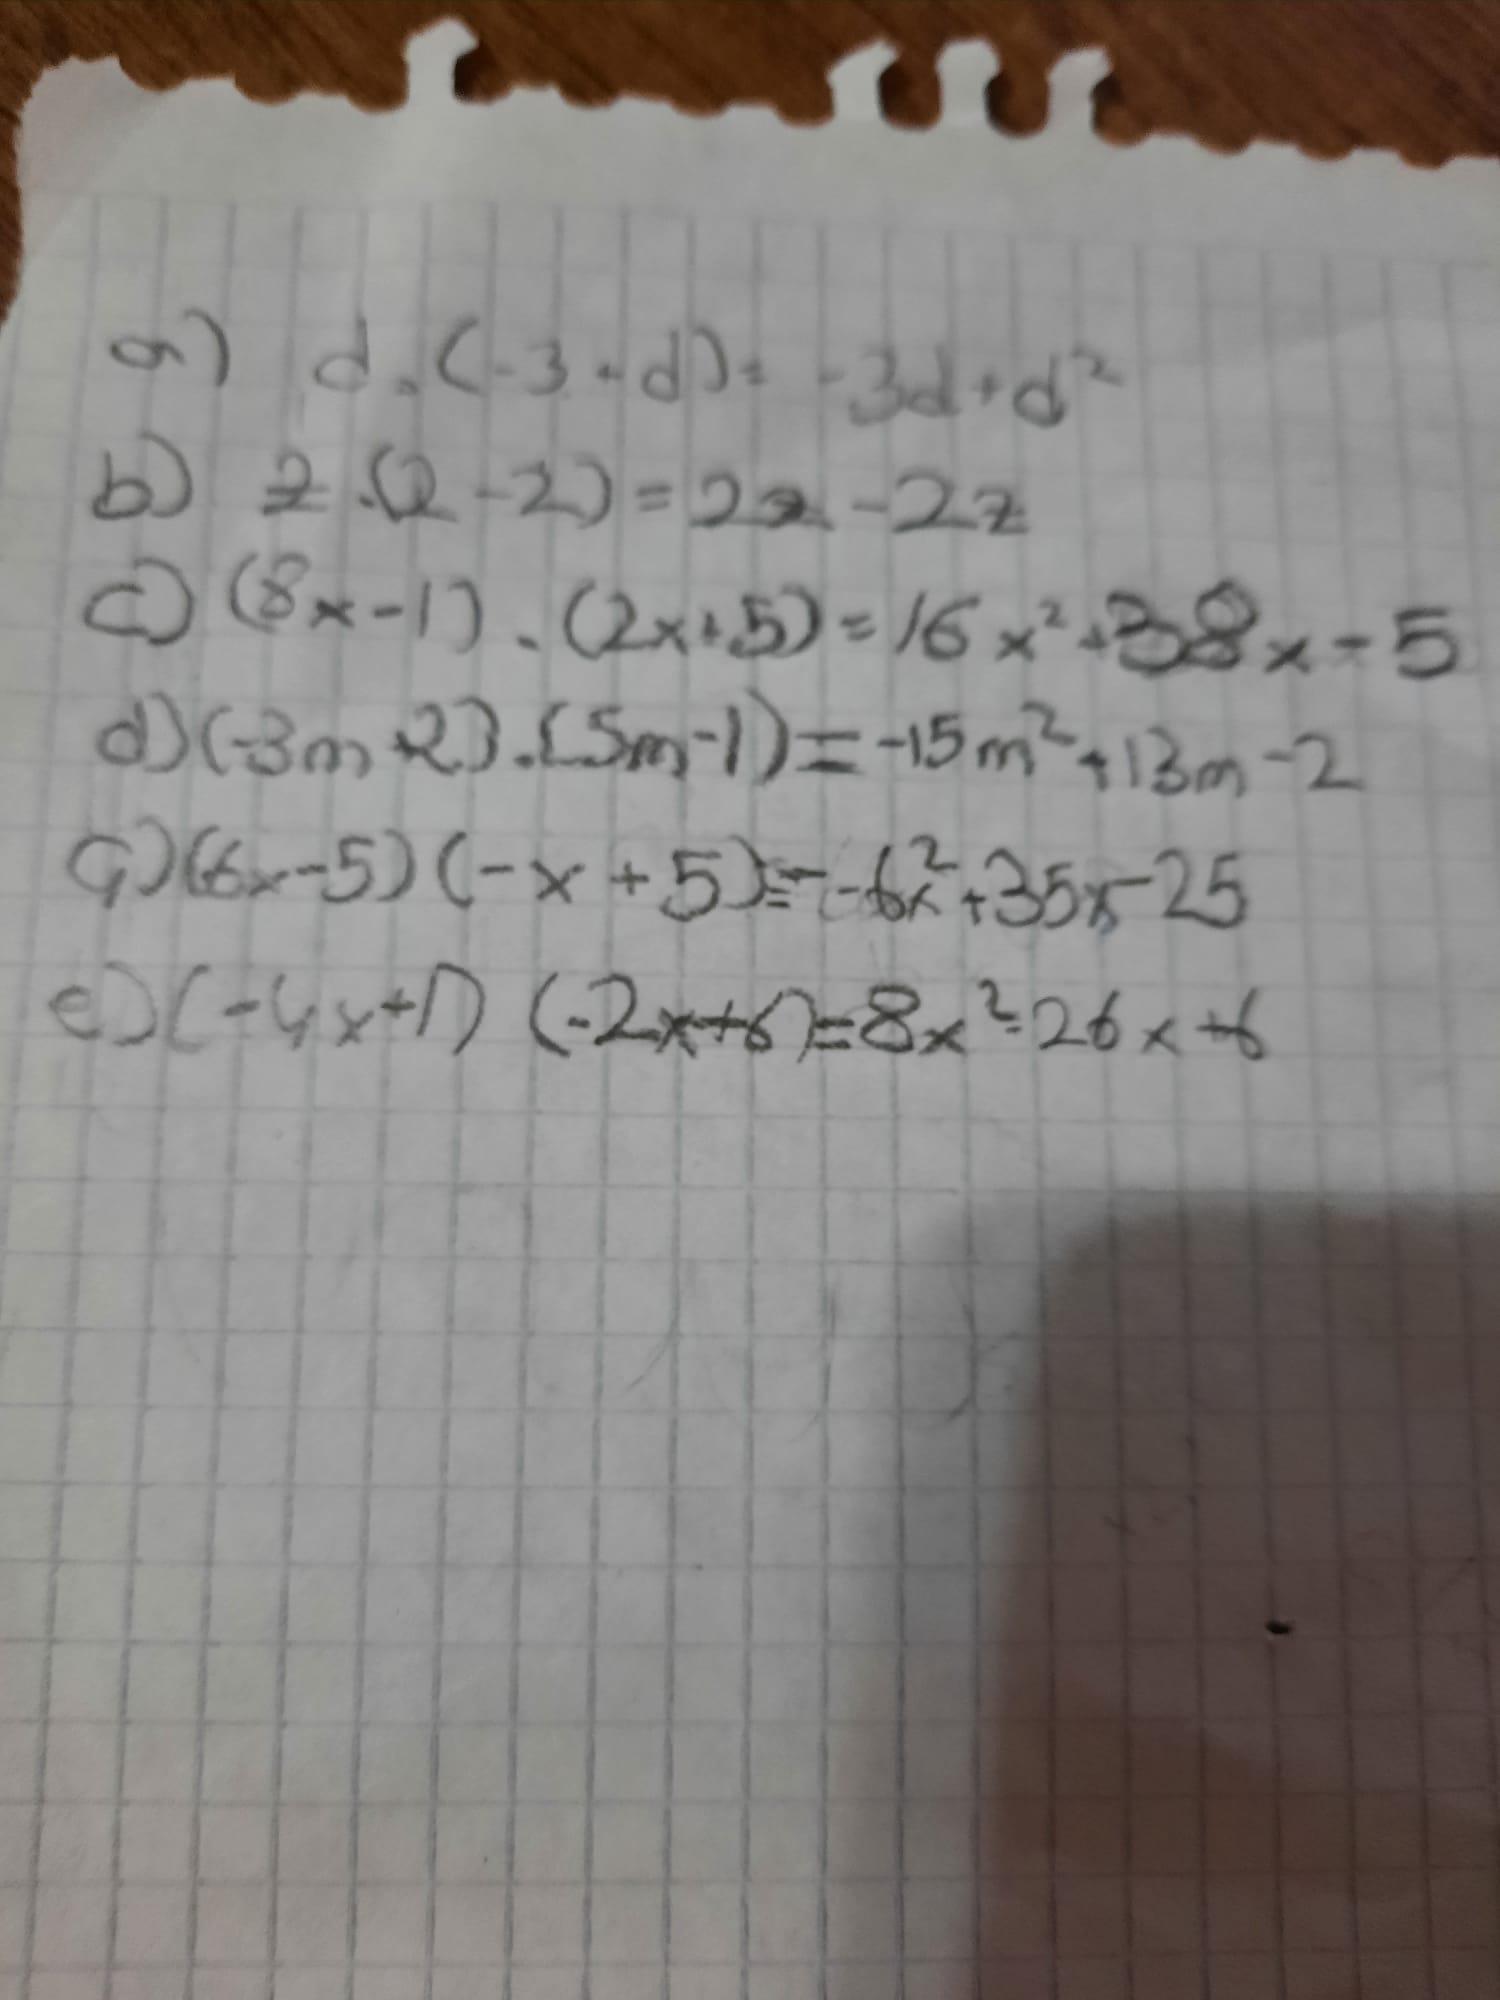 a) d.(-3+d)= -3d+d²
b) z.(2-2)=2z-2z
c) (8x-1).(2x+5)=16x²+38x-5
d)(-3m+2).(5m-1)=-15m²+13m-2
G)(6x-5)(-x+5)=-6x²+35x-25
e)(-4x+1)(-2x+6)=8x²-26x+6